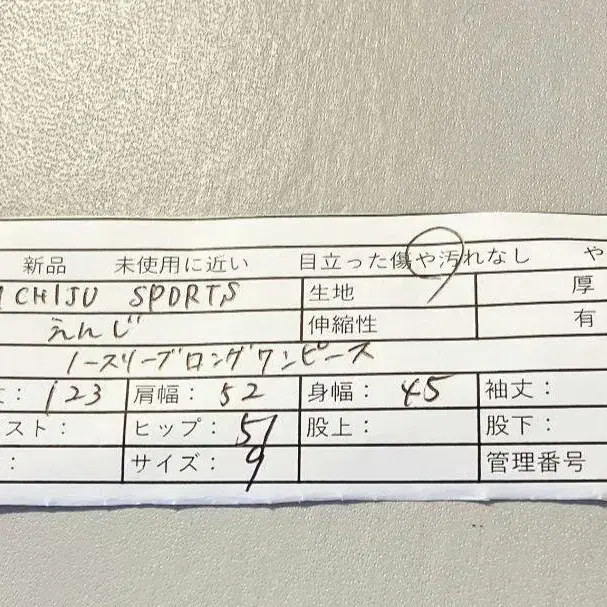 新品 未使用に近い 目立った傷や汚れなし や
ICHIJU SPORTS 生地 厚
えんじ 伸縮性 有
ノースリーブロングワンピース
丈: 123 肩幅: 52 身幅: 45 袖丈:
スト: ヒップ: 51 股上: 股下:
: サイズ: 9 管理番号